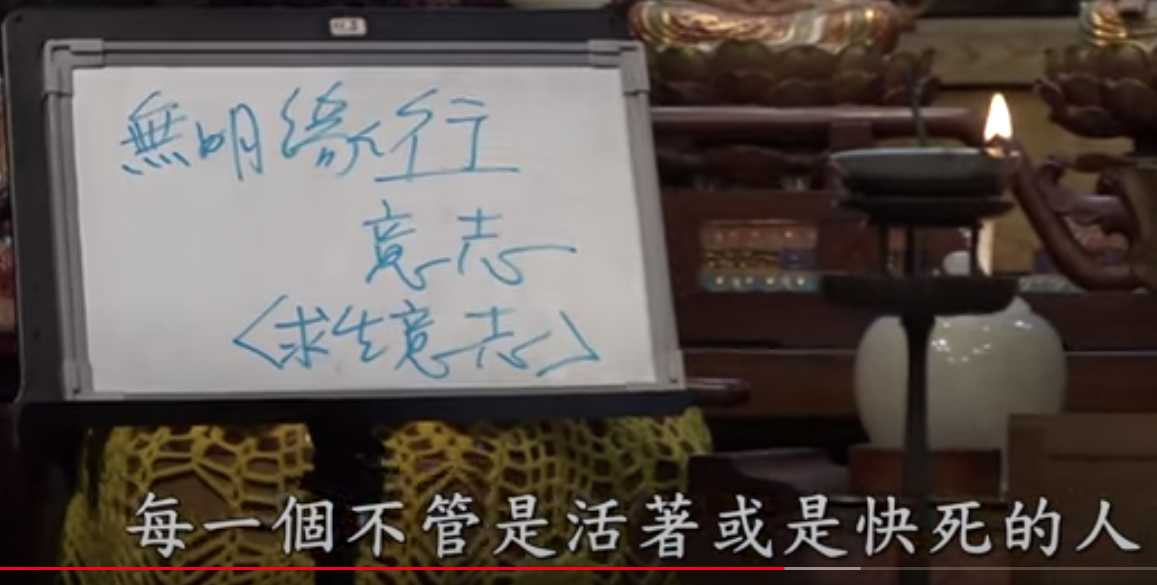 無明緣行
意志
〈求生意志〉
每一個不管是活著或是快死的人